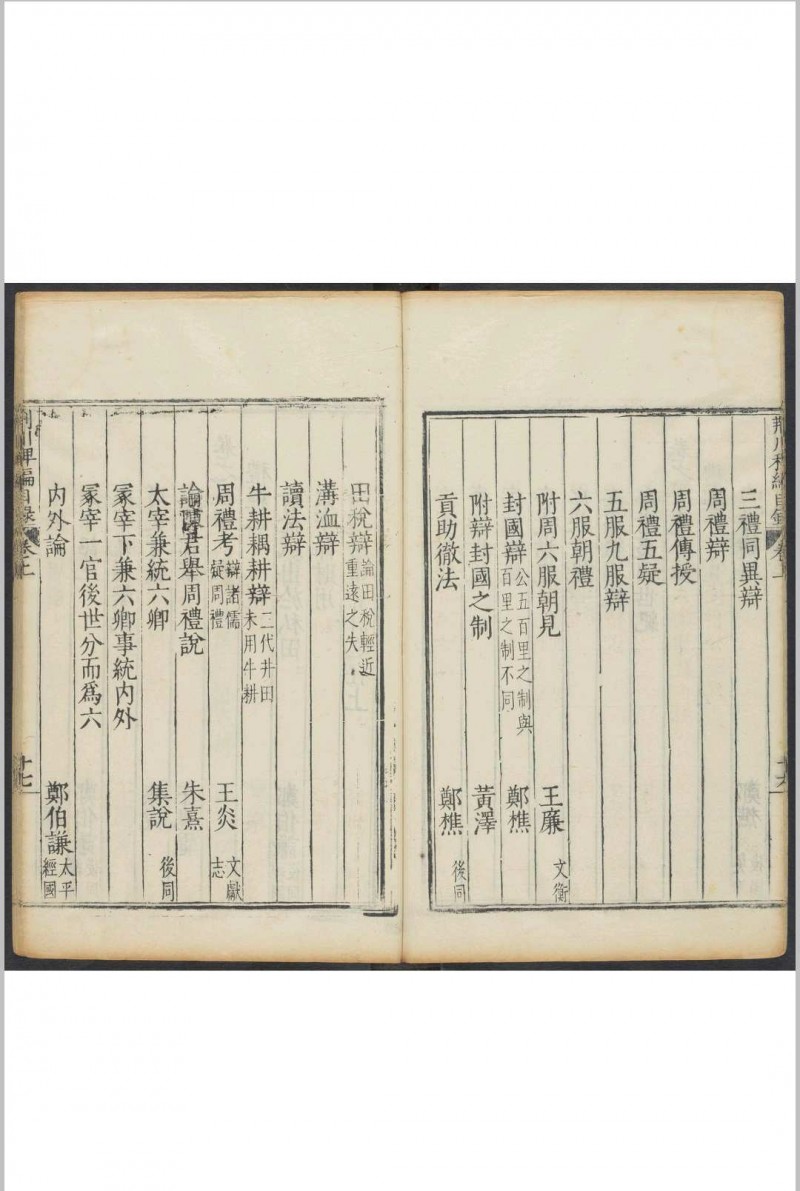 荊川稗編目錄 卷上
三禮同異辯
周禮辯
周禮傳授
周禮五疑
五服九服辯
六服朝禮
附周六服朝見 王廉 文衡
封國辯 公五百里之制與百里之制不同 鄭樵
附辯封國之制 黃澤
貢助徹法 鄭樵 後同
十六
田稅辯 論田稅輕近重遠之失
溝洫辯
讀法辯
牛耕耦耕辯 二代井田未用牛耕
周禮考 辯諸儒疑周禮 王炎 文獻志
論君舉周禮說 朱熹
太宰兼統六卿 集說 後同
冢宰下兼六卿事統內外
冢宰一官後世分而爲六
內外論 鄭伯謙 太平經國
荊川稗編目錄 卷上
十七